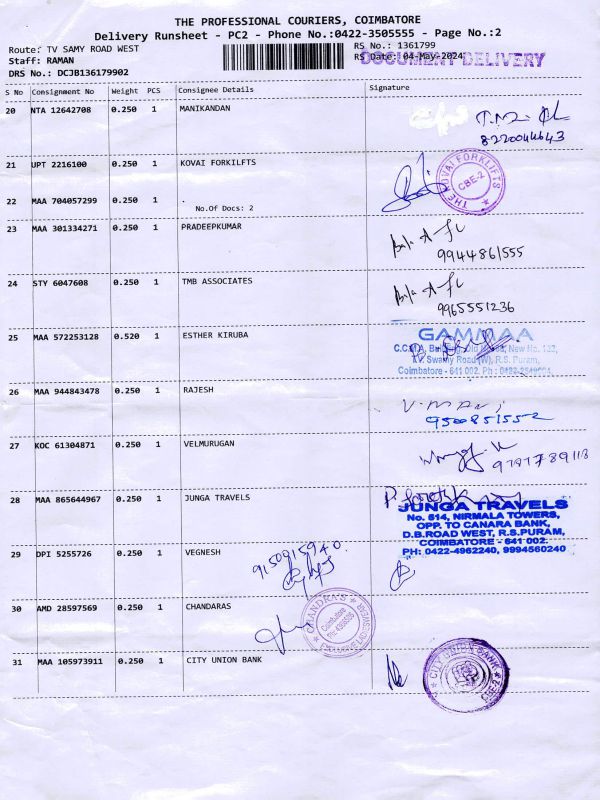 THE PROFESSIONAL COURIERS, COIMBATORE
Delivery Runsheet - PC2 - Phone No.:0422-3505555 - Page No.:2
Route: TV SAMY ROAD WEST
RS No.: 1361799
Staff: RAMAN
RS Date: 04-May-2024
DOCUMENT DELIVERY
DRS No.: DCJB136179902
S No Consignment No Weight PCS Consignee Details Signature
20 NTA 12642708 0.250 1 MANIKANDAN
8220044643
21 UPT 2216100 0.250 1 KOVAI FORKILFTS
THE KOVAI FORKLIFTS CBE-2
22 MAA 704057299 0.250 1 .
No.Of Docs: 2
23 MAA 301334271 0.250 1 PRADEEPKUMAR
9944861555
24 STY 6047608 0.250 1 TMB ASSOCIATES
9965551236
25 MAA 572253128 0.520 1 ESTHER KIRUBA
GAMMAA
C.C.M.A. Building, New No. 132,
T.V. Swamy Road (W), R.S. Puram,
Coimbatore - 641 002. Ph :
26 MAA 944843478 0.250 1 RAJESH
V. MANI
9500851552
27 KOC 61304871 0.250 1 VELMURUGAN
28 MAA 865644967 0.250 1 JUNGA TRAVELS
JUNGA TRAVELS
No. 614, NIRMALA TOWERS,
OPP. TO CANARA BANK,
D.B.ROAD WEST, R.S.PURAM,
COIMBATORE - 641 002.
PH: 0422-4962240, 9994560240
29 DPI 5255726 0.250 1 VEGNESH
9150915940
30 AMD 28597569 0.250 1 CHANDARAS
CHANDRA'S
Coimbatore
31 MAA 105973911 0.250 1 CITY UNION BANK
CITY UNION BANK CBE-2